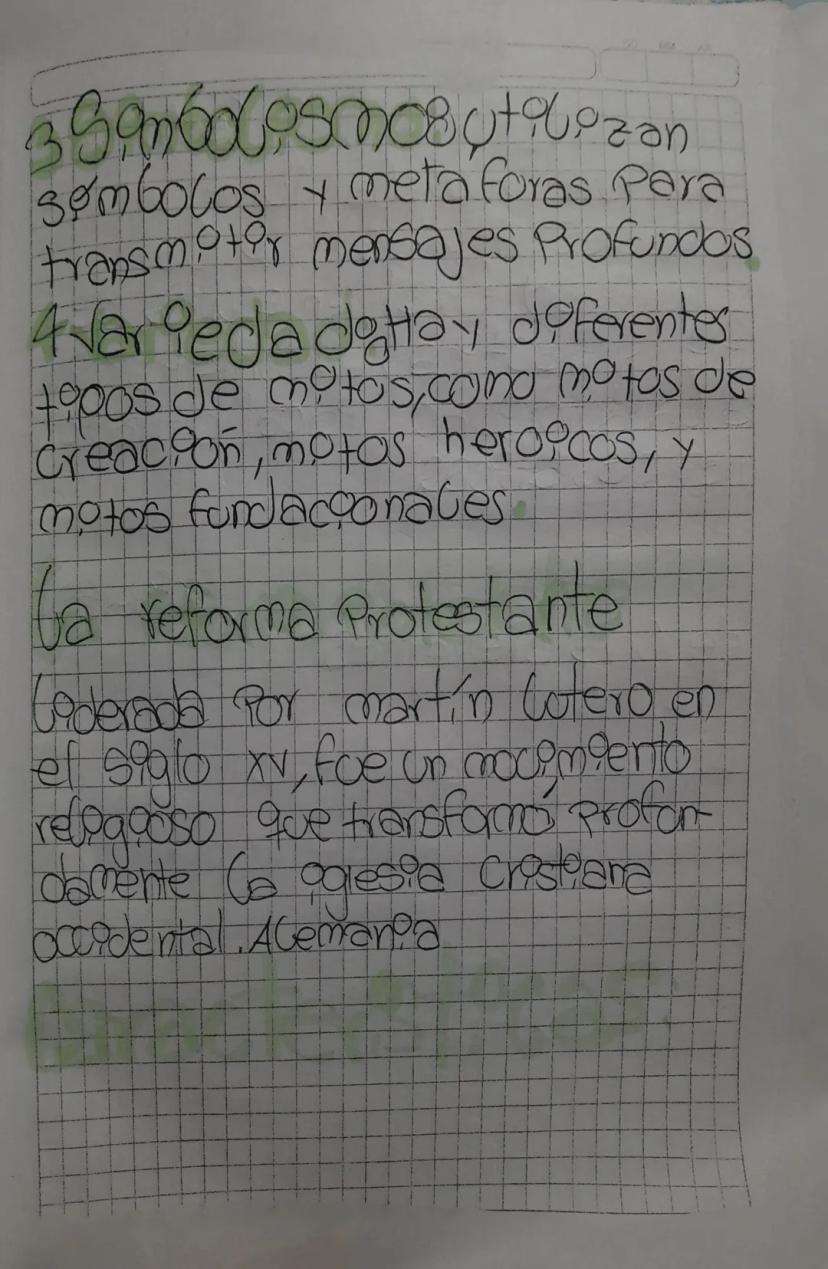 3 Simbolismo: utilizan
simbolos y metaforas para
transmitir mensajes profundos.
4 Variedad: Hay diferentes
tipos de mitos, como mitos de
creación, mitos heroicos, y
mitos fundacionales.
La reforma Protestante
Liderada por martín lutero en
el siglo xv, fue un mocimiento
religioso que transformó profun-
damente la iglesia cristiana
occidental. Alemania